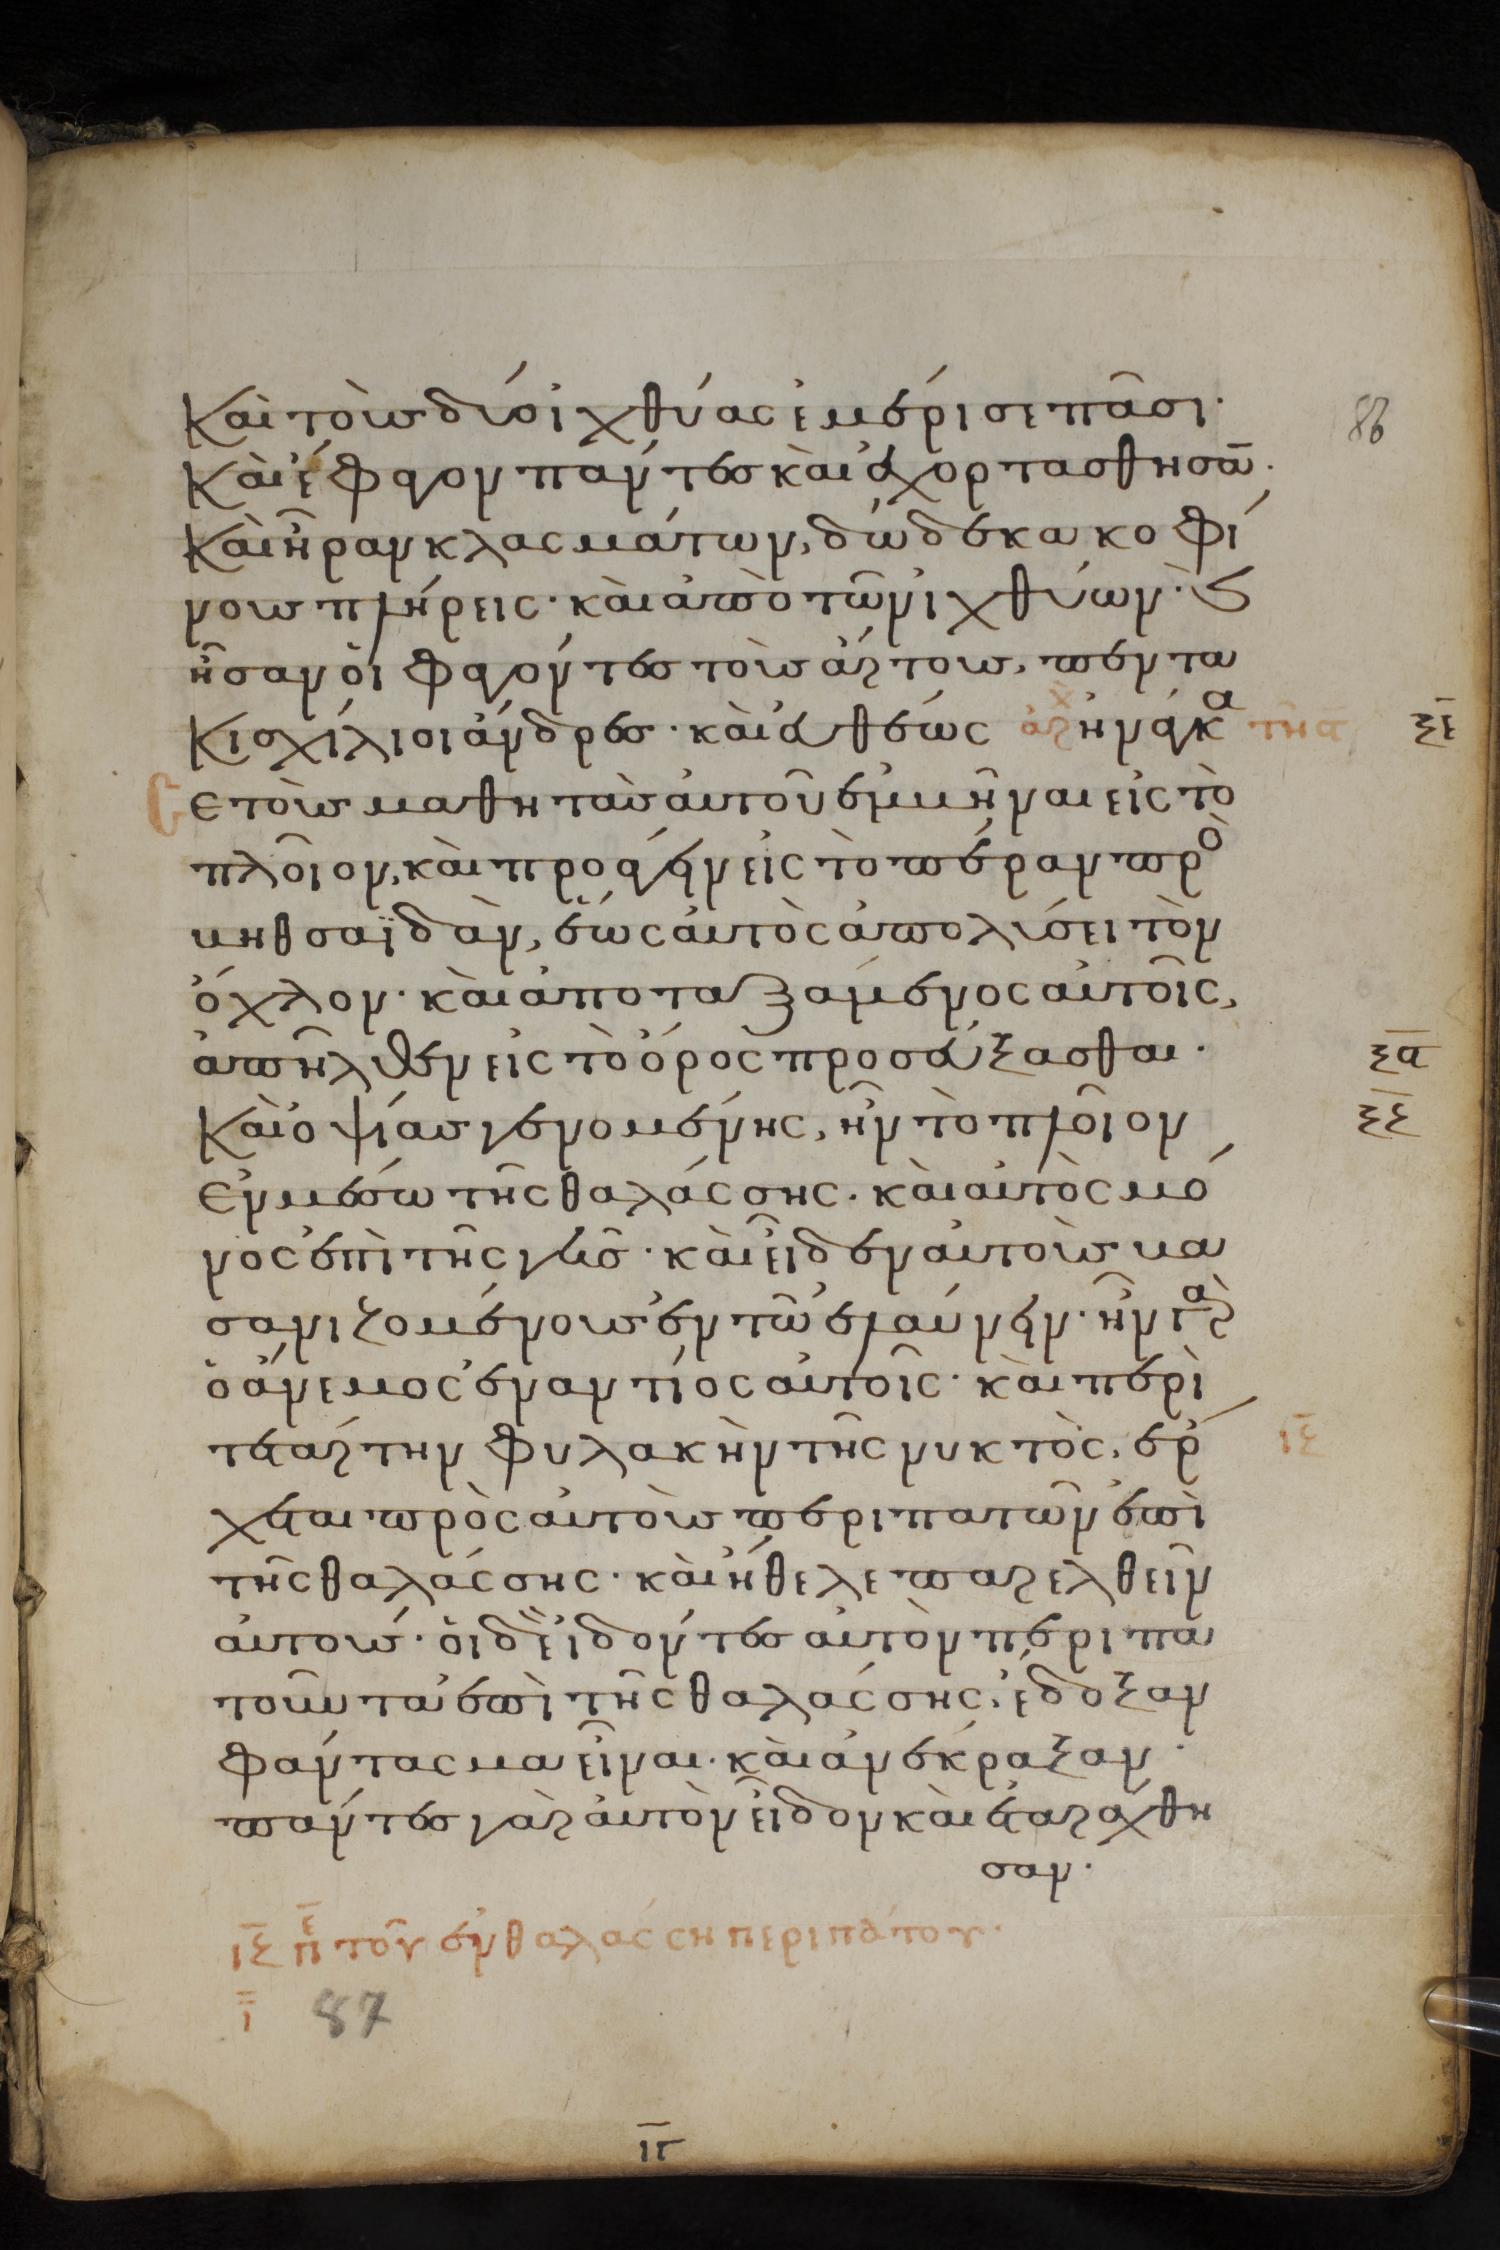 Καὶ τοὺς δύο ἰχθύας ἐμέρισε πᾶσι·
86
Καὶ ἔφαγον πάντες καὶ ἐχορτάσθησαν·
Καὶ ἦραν κλασμάτων, δώδεκα κοφί
νους πλήρεις· καὶ ἀπὸ τῶν ἰχθύων· Καὶ
ἦσαν οἱ φαγόντες τοὺς ἄρτους, πέντα
Κισχίλιοι ἄνδρες· καὶ εὐθέως ἀρχ ἠνάγκα τῆς
ξε
ε τοὺς μαθητὰς αὐτοῦ ἐμβῆναι εἰς τὸ
πλοῖον, καὶ προάγειν εἰς τὸ πέραν πρὸ
βηθσαϊδὰν, ἕως αὐτὸς ἀπολύσει τὸν
ὄχλον· καὶ ἀποταξάμενος αὐτοῖς,
ἀπῆλθεν εἰς τὸ ὄρος προσεύξασθαι·
ξς
Καὶ ὀψίας γενομένης, ἦν τὸ πλοῖον
ξζ
Ἐν μέσω τῆς θαλάσσης· καὶ αὐτὸς μό
νος ἐπὶ τῆς γῆς· καὶ εἶδεν αὐτοὺς βα
σανιζομένους ἐν τῶ ἐλαύνειν· ἦν γὰρ
ὁ ἄνεμος ἐναντίος αὐτοῖς· καὶ περὶ
τετάρτην φυλακὴν τῆς νυκτὸς, ἔρ
ις
χεται πρὸς αὐτοὺς περιπατῶν ἐπὶ
τῆς θαλάσσης· καὶ ἤθελε παρελθεῖν
αὐτούς· οἱ δὲ ἰδόντες αὐτὸν περιπα
τοῦντα ἐπὶ τῆς θαλάσσης, ἔδοξαν
φάντασμα εἶναι· καὶ ἀνέκραξαν·
πάντες γὰρ αὐτὸν εἶδον καὶ ἐταράχθη
σαν·
ις πε τοῦ ἐν θαλάσση περιπάτου·
87
ιγ